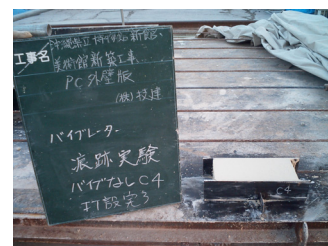 工事名
沖縄県立博物館新館・
美術館新築工事
PC外壁版
(株)技建
バイブレーター
痕跡実験
バイブなしC4
打設完了
C4